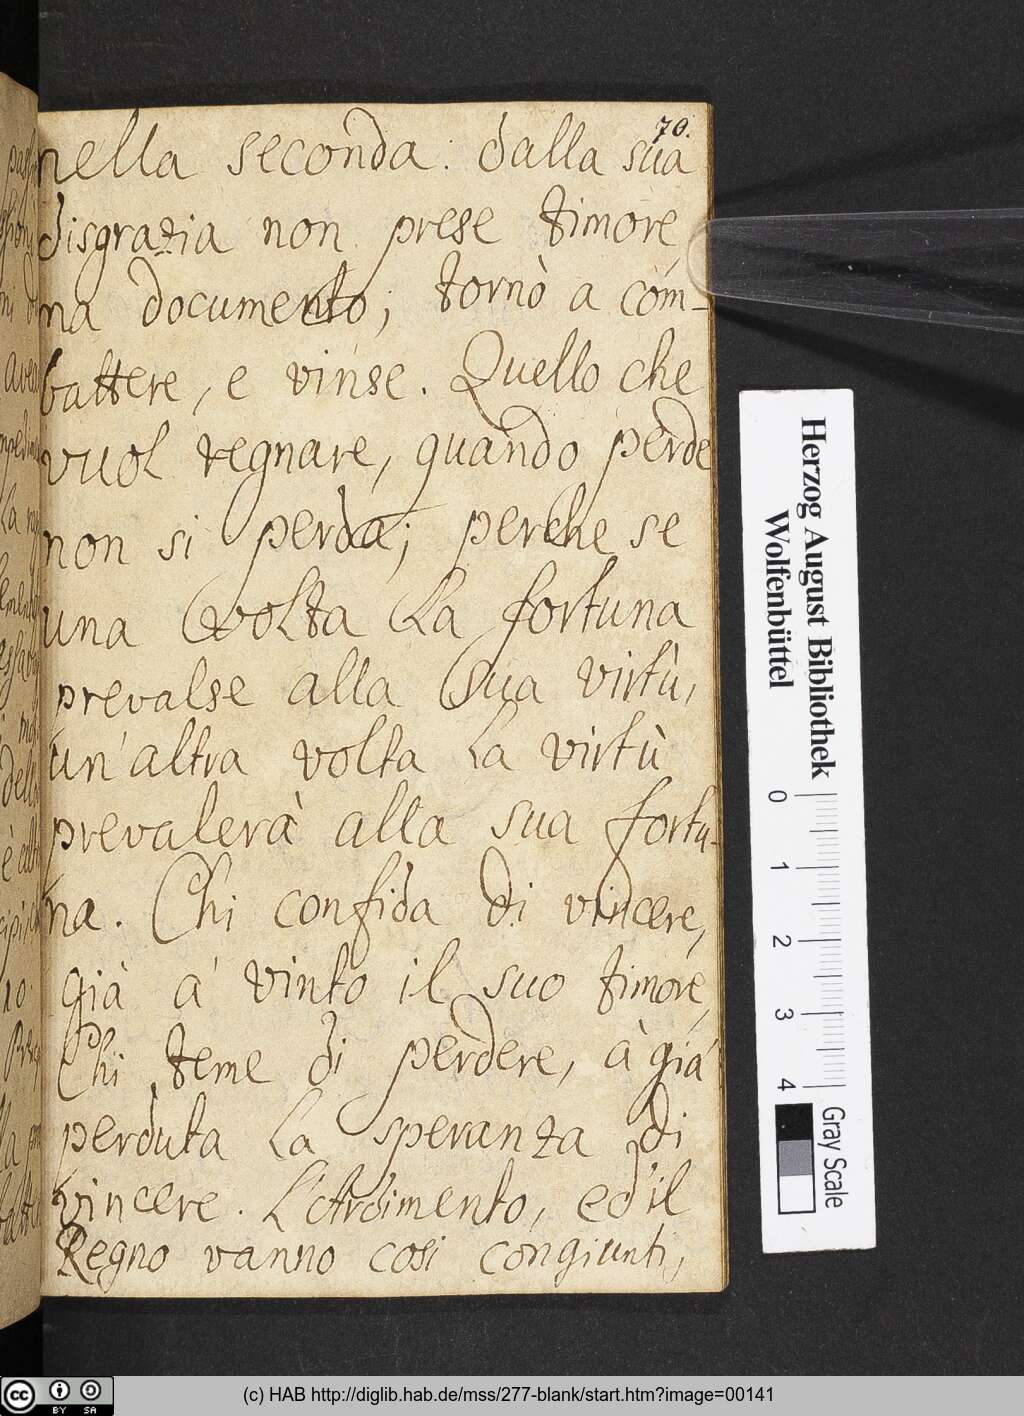 70.
nella seconda: dalla sua
disgrazia non prese timore
ma documento; tornò a com-
battere, e vinse. Quello che
vuol regnare, quando perde
non si perda; perche se
una volta la fortuna
prevalse alla sua virtù,
un'altra volta la virtù
prevalerà alla sua fortu-
na. Chi confida di vincere,
già à vinto il suo timore,
Chi teme di perdere, à già
perduta la speranza di
vincere. L'Ardimento, ed il
Regno vanno cosi congiunti,
Herzog August Bibliothek
Wolfenbüttel
0 1 2 3 4
Gray Scale
(c) HAB http://diglib.hab.de/mss/277-blank/start.htm?image=00141
cc BY SA